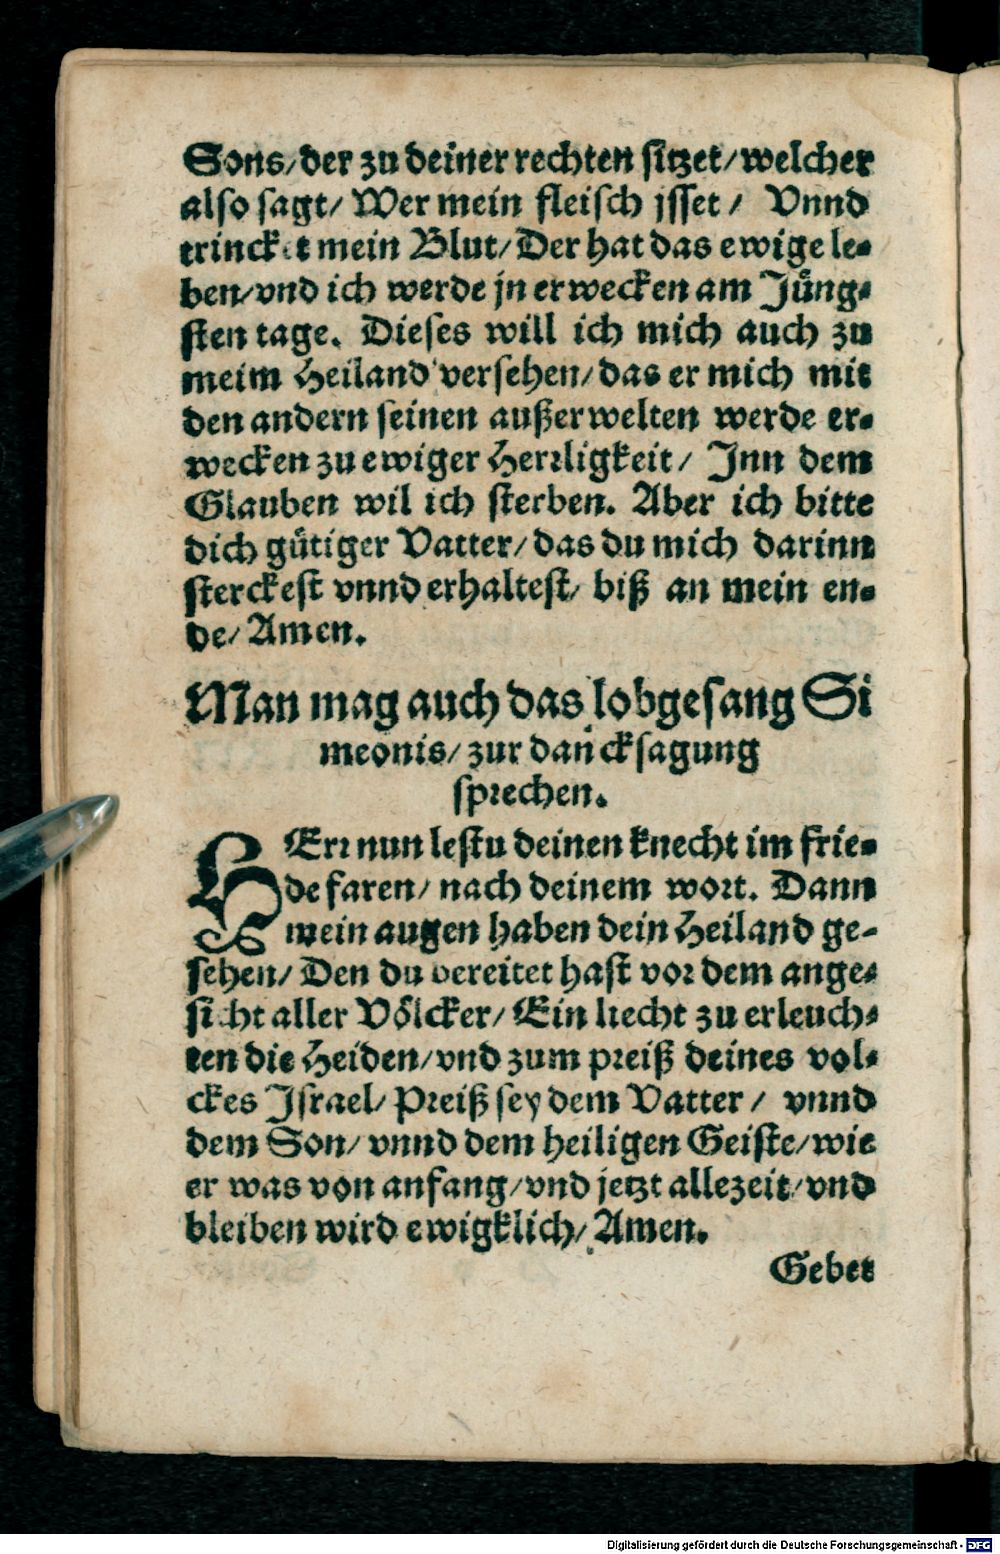 Sons/der zu deiner rechten sitzet/welcher
also sagt/ Wer mein fleisch jsset/ Vnnd
trincket mein Blut/Der hat das ewige le-
ben/vnd ich werde jn erwecken am Jüng-
sten tage. Dieses will ich mich auch zu
meim Heiland versehen/das er mich mit
den andern seinen außerwelten werde er-
wecken zu ewiger Herrligkeit/ Jnn dem
Glauben wil ich sterben. Aber ich bitte
dich gütiger Vatter/das du mich darinn
sterckest vnnd erhaltest/ biß an mein en-
de/Amen.
Man mag auch das lobgesang Si
meonis/zur dancksagung
sprechen.
HErr nun lestu deinen knecht im frie-
de faren/nach deinem wort. Dann
mein augen haben dein Heiland ge-
sehen/Den du bereitet hast vor dem ange-
sicht aller Völcker/Ein liecht zu erleuch-
ten die Heiden/vnd zum preiß deines vol-
ckes Jsrael/Preiß sey dem Vatter/ vnnd
dem Son/vnnd dem heiligen Geiste/wie
er was von anfang/vnd jetzt allezeit/vnd
bleiben wird ewigklich/Amen.
Gebet
Digitalisierung gefördert durch die Deutsche Forschungsgemeinschaft - DFG